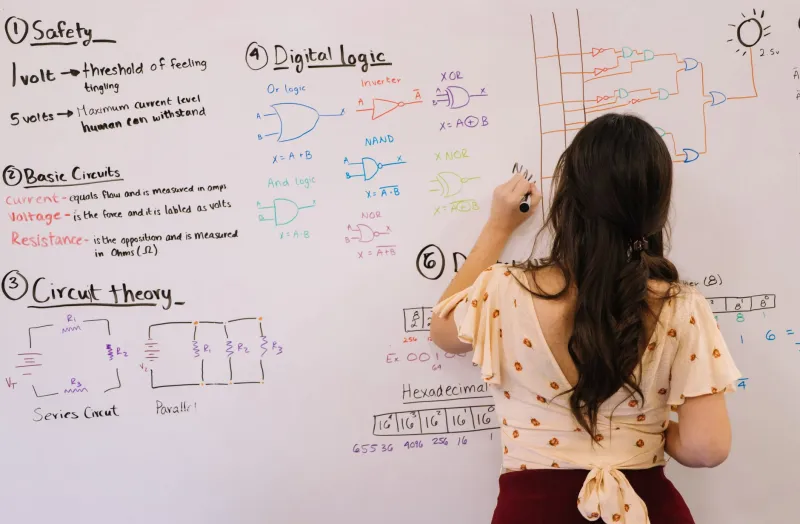 ① Safety
1 volt → threshold of feeling
tingling
5 volts → Maximum current level
human can withstand
② Basic Circuits
Current - equals flow and is measured in amps
Voltage - is the force and it is labled as volts
Resistance - is the opposition and is measured
in Ohms (Ω)
③ Circut theory
R₁
R₂
R₃
V_T
Series Circut
R₁
R₂
R₃
Parallel
④ Digital logic
Or logic
A
B
X
X = A + B
Inverter
A
A̅
XOR
A
B
X
X = A ⊕ B
NAND
A
B
X
X = A̅·̅B̅
And logic
A
B
X
X = A·B
NOR
X = A̅+̅B̅
X NOR
X = A̅⊕̅B̅
2.5v
8¹ 8⁰
(8)
8 1
1 6 =
256
Ex 001
64
Hexadecimal
16⁴ 16³ 16² 16¹ 16⁰
65536 4096 256 16 1